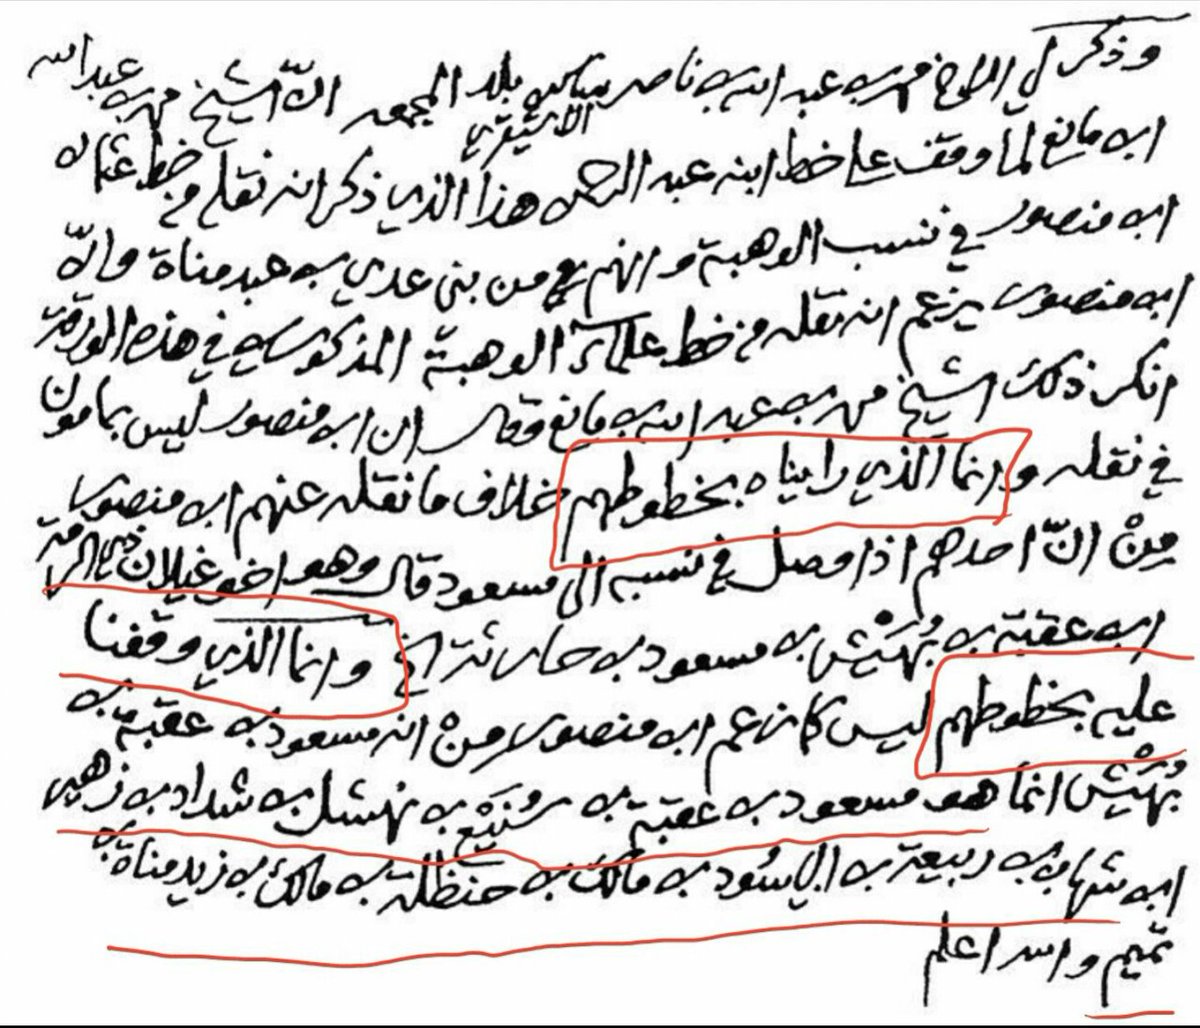 وذكر لي الاخ محمد بن عبد الله بن ناصر ساكن بلد المجمعه انّ الشيخ محمد بن عبدالله
الاشيقري
ابن مانع لما وقف على خط ابنه عبد الرحمن هذا الذي ذكر انه نقله من خط عثمان
ابن منصور في نسب الوهبة وانهم من بني عدي بن عبد مناة وانّ
ابن منصور يزعم انه نقله من خط علماء الوهبة المذكورين في هذه الورقة
انكر ذلك الشيخ محمد بن عبد الله بن مانع وقال ان ابن منصور ليس بمامون
في نقله وانما الذي رايناه بخطوطهم خلاف ما نقله عنهم ابن منصور
مِنْ انّ احدهم اذا وصل في نسبه الى مسعود قال وهو اخو غيلان ذي الرمة
ابن عقبة بن بُهَيْش بن مسعود بن حارثة الخ وانما الذي وقفنا
عليه بخطوطهم ليس كما زعم ابن منصور مِنْ انه مسعود بن عقبة بن
بُهَيْش انما هو مسعود بن عقبة بن سُنَيْع بن نهشل بن شداد بن زهير
ابن شهاب بن ربيعة بن ابي الاسُود بن مالك بن حنظلة بن مالك بن زيد مناة بن
تميم والله اعلم